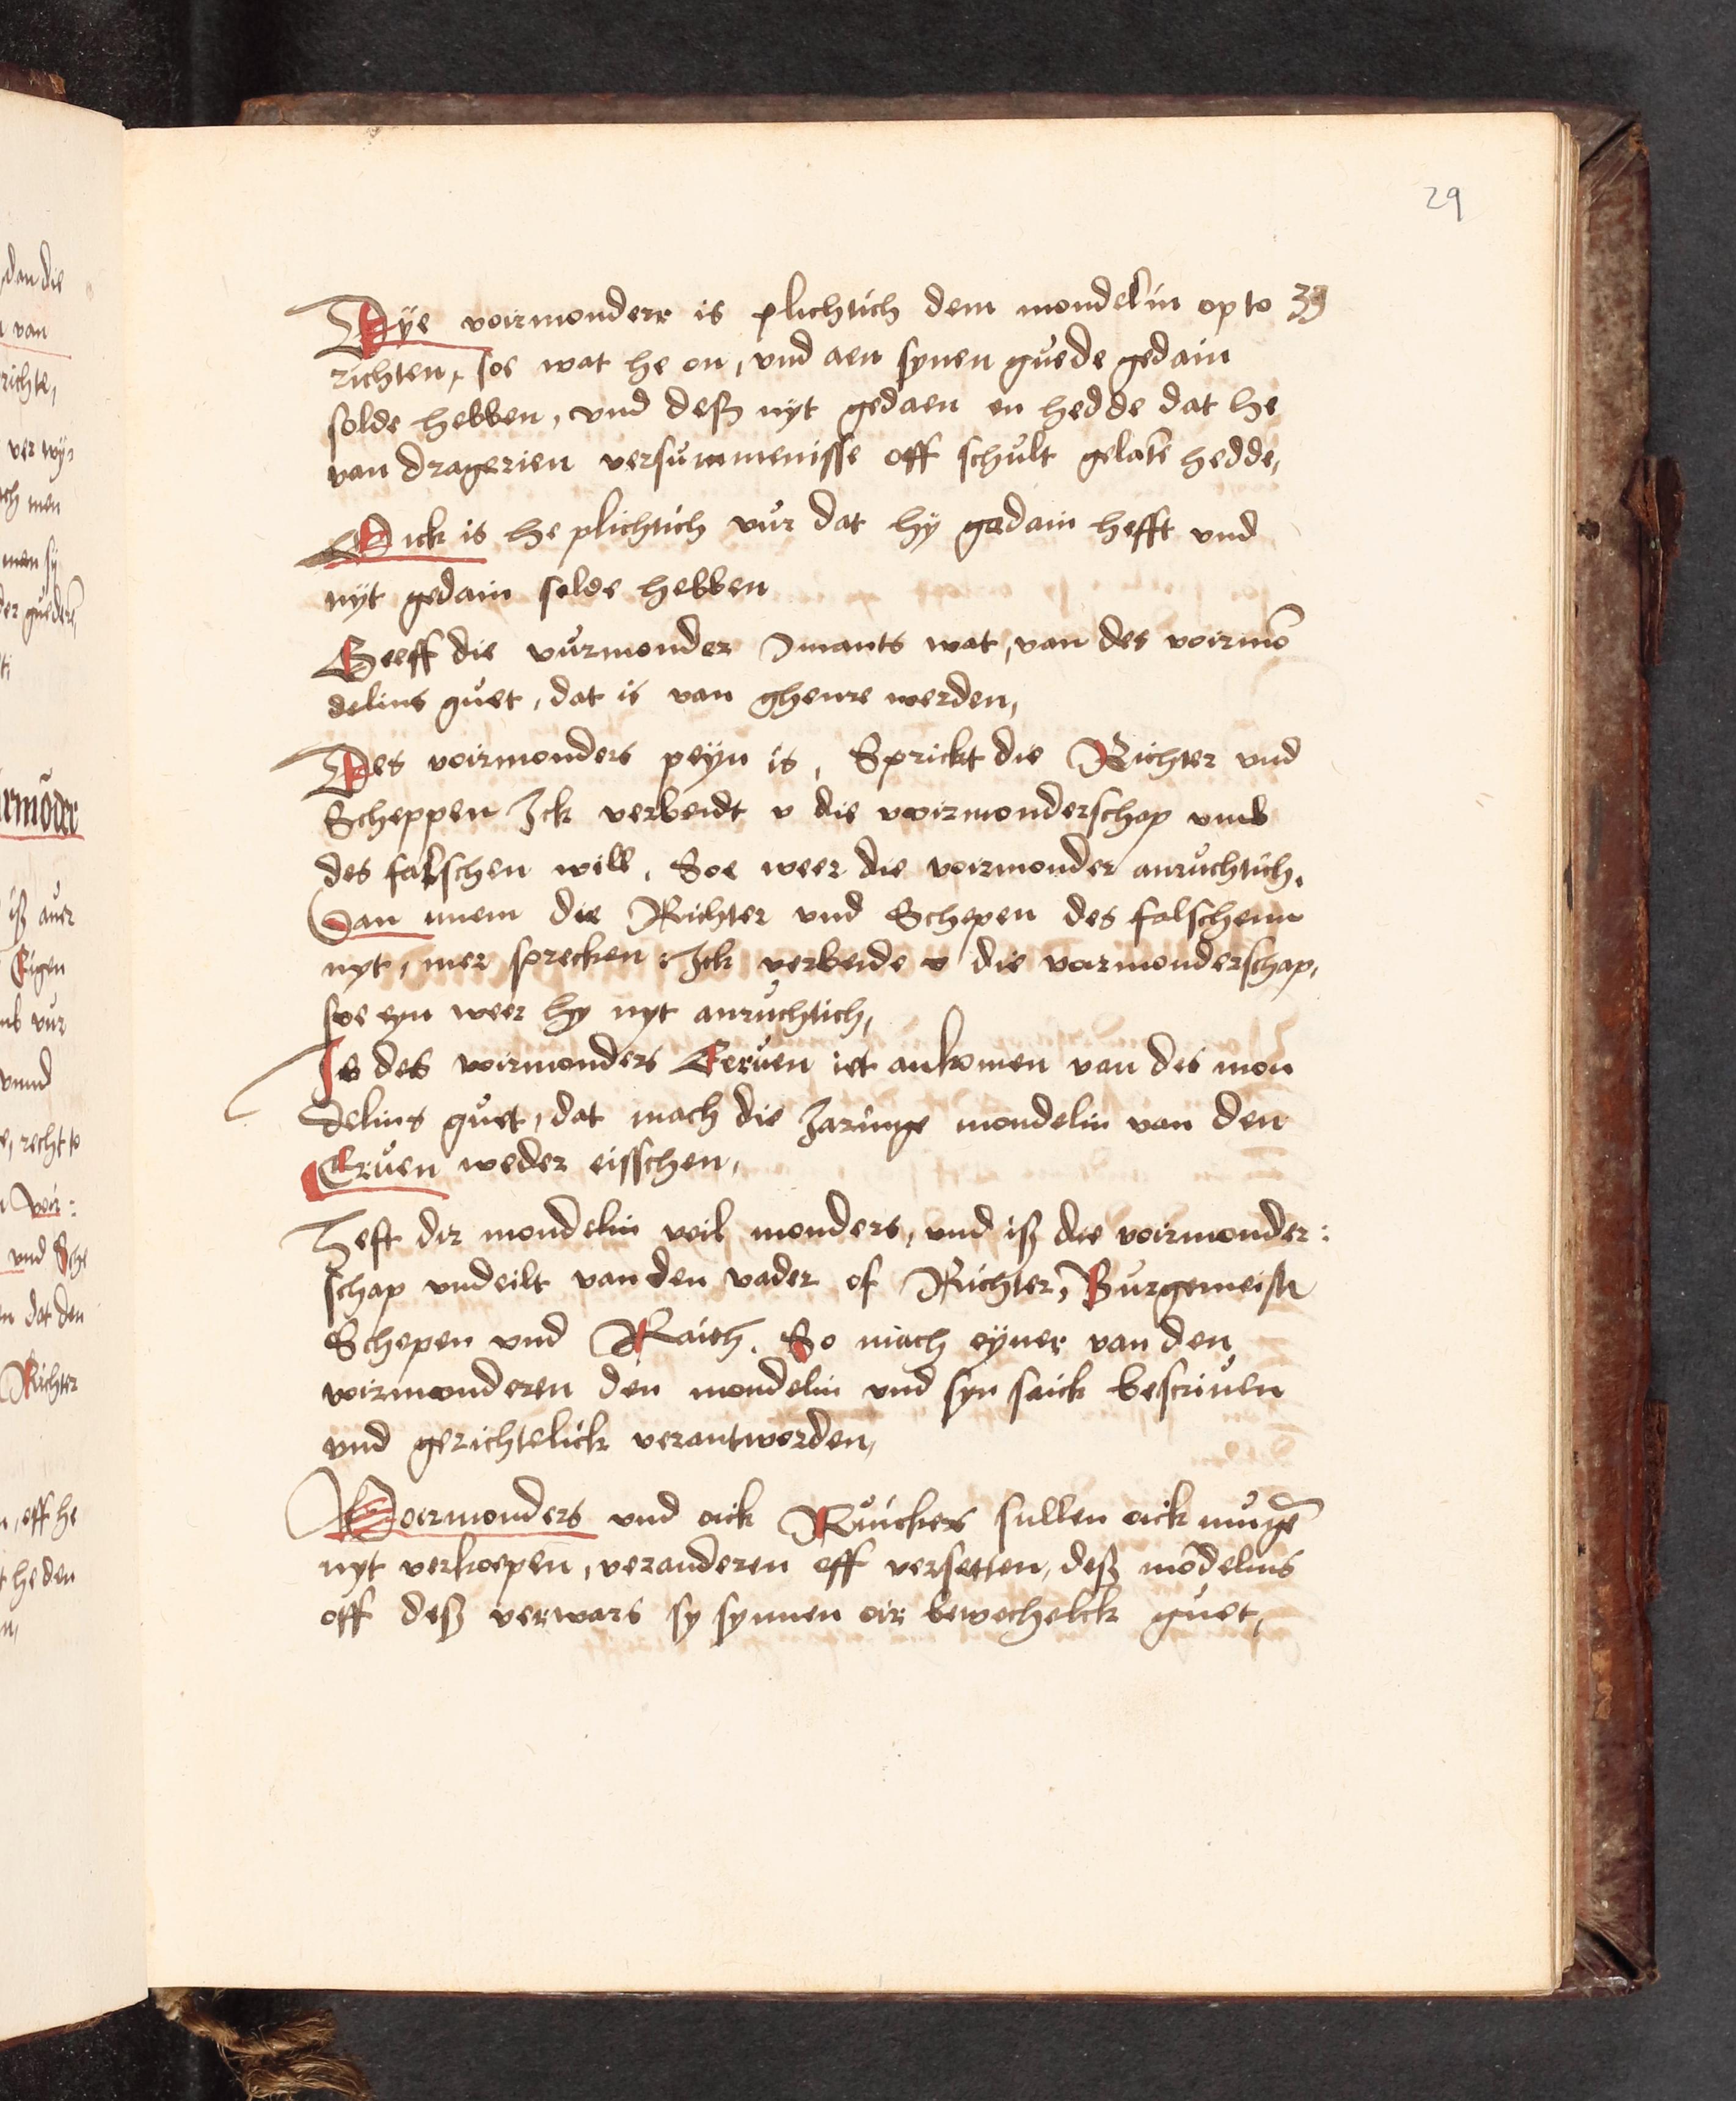 29
Dÿe voirmonderr is plichtich dem mondelin op to 39
richten, soe wat he on, vnd aen synen guede gedain
solde hebben, vnd deß nÿt gedaen en hedde dat he
van dragerien versummenisse off schult gelatē hedde,
Oick is he plichtich vur dat hÿ gedain hefft vnd
nÿt gedain solde hebben
Geeff die vurmonder Imants wat, van des voirmō
delins guet, dat is van gheinre werden,
Des voirmonders peÿn is, Sprickt die Richter vnd
Scheppen Ick verbeidt v die voirmonderschap vmb
des falschen will, Soe weer die voirmonder anruchtich.
Dan nuem die Richter vnd Schepen des falschenn
nyt, mer sprecken: Ick verbeide v die voirmonderschap,
soe eyn weer hy nyt anruchtich,
Is des voirmonders Eeruen iet ankomen van des mon
delins guet, dat mach die Jaringe mondelin van den
Eruen weder eisschen,
Heft dir mondelin veil monders, vnd iß die voirmonder:
schap vndeilt van den vader of Richter, Burgemeistr
Schepen vnd Raith. So mach eÿner van den
voirmonderen den mondelin vnd syn saick bescriuen
vnd gerichtelick verantworden,
Voirmonders vnd oick Ruickers sullen oick mugē
nyt verkoepen, veranderen off versetten, deß mōdelins
off deß verwars sy synnen oir bewechelck guet,
dan die
van
richte,
ver wÿ,
men
men sÿ
der guederē
rmōder
iß auer
Eigen
vmb vur
vnnd
recht to
voir:
vnd Sche
dat den
Richter
off he
he den